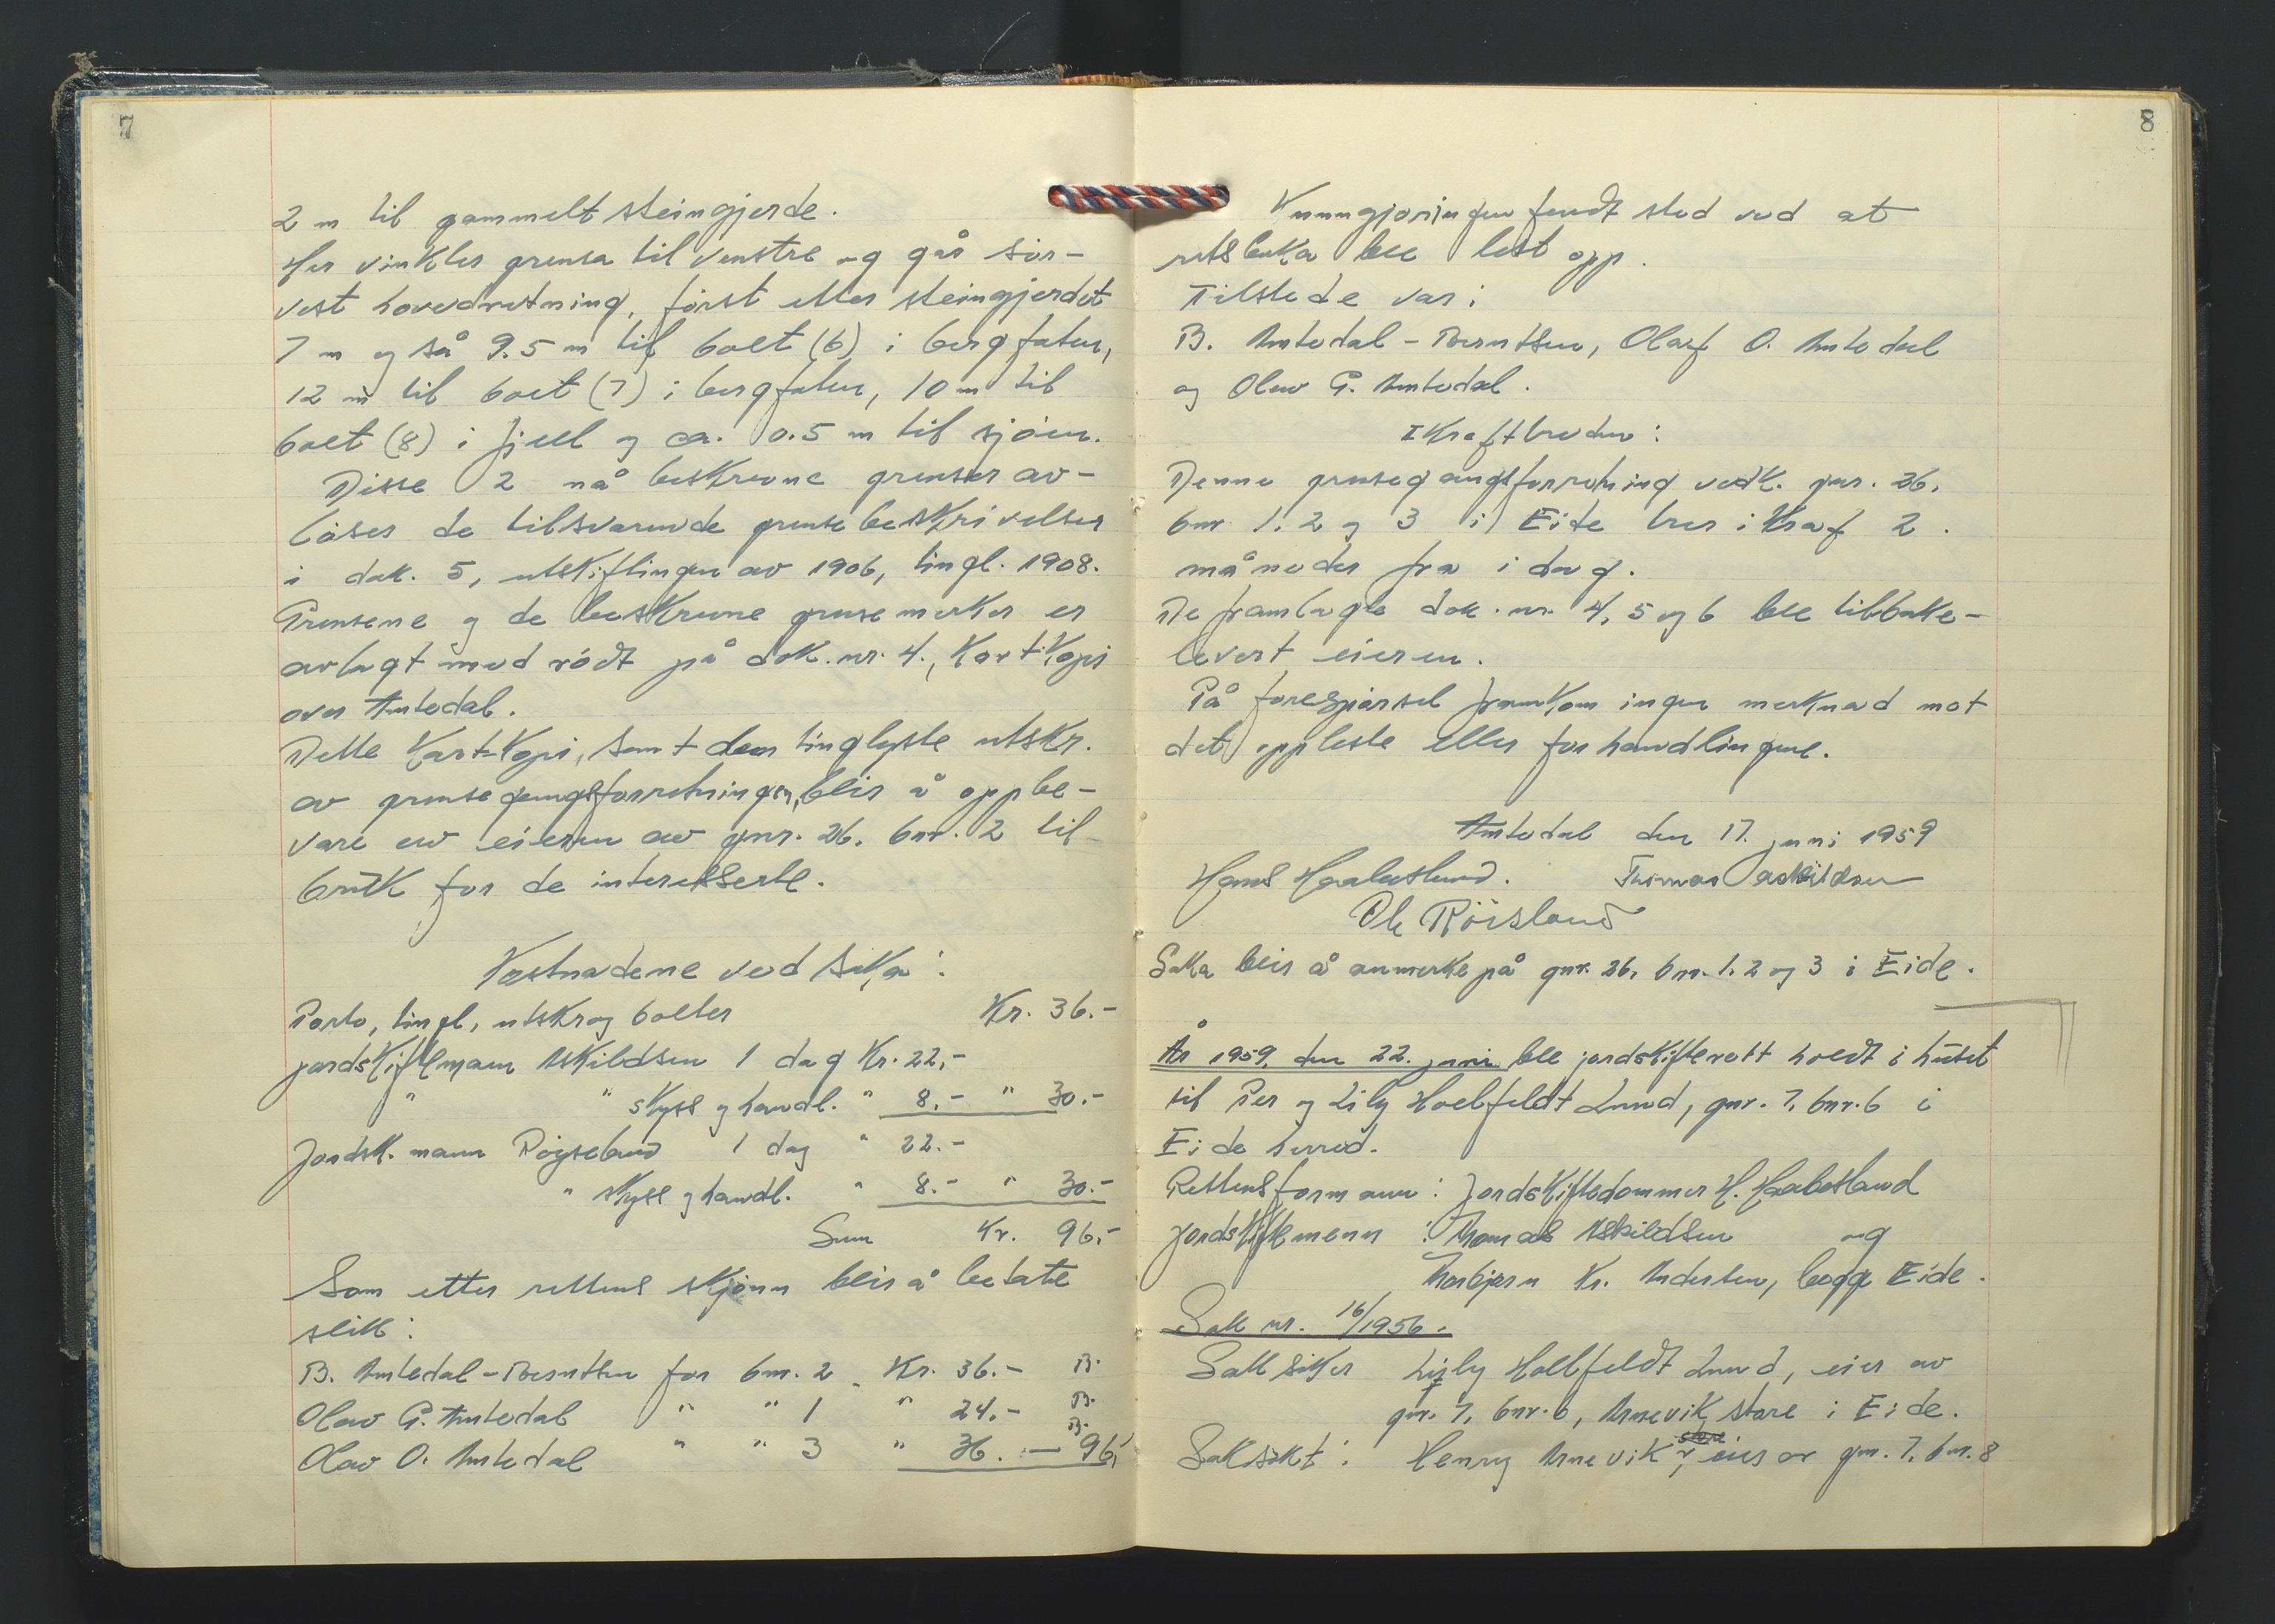 7
2 m til gammelt steingjerde.
Her vinkler grensa til venstre og går sør-
vest hovedretning, først etter steingjerdet
7 m og så 9.5 m til bolt (6) i bergfoten,
12 m til bolt (7) i bergfoten, 10 m til
bolt (8) i fjell og ca. 0.5 m til sjøen.
Disse 2 nå beskrevne grenser av-
løser de tilsvarende grensebeskrivelser
i dok. 5, utskiftingen av 1906, tingl. 1908.
Grensene og de beskrevne grensemerker er
avlagt med rødt på dok. nr. 4., Kart-Kopi
over Amtedal.
Dette Kart-Kopi, samt den tinglyste utskr.
av grensegangsforretningen, blir å oppbe-
vare av eieren av gnr. 26. bnr. 2 til
bruk for de interesserte.
Kostnadene ved saka:
Porto, tingl, utskr og bolter Kr. 36.-
jordskiftemann Askildsen 1 dag Kr. 22,-
" " skyss og handl. " 8.- " 30.-
Jordsk. mann Røyseland 1 dag " 22.-
" skyss og handl. " 8.- " 30.-
Sum Kr. 96,-
Som etter rettens skjønn blir å betale
slik:
B. Amtedal-Berntsen for bnr. 2 Kr. 36.- B.
Olav G. Amtedal " " 1 " 24.- B.
Olav O. Amtedal " " 3 " 36.- B. 96,-
8
Kunngjøringen fandt sted ved at
rettsboka ble lest opp.
Tilstede var:
B. Amtedal-Berntsen, Olaf O. Amtedal
og Olav G. Amtedal.
I Krafttreden:
Denne grensegangsforretning vedk. gnr. 26,
bnr 1, 2 og 3 i Eide trer i Kraf 2.
måneder fra i dag.
De framlagte dok. nr. 4, 5 og 6 ble tilbake-
levert eieren.
På forespørsel framkom ingen merknad mot
det oppleste eller forhandlingene.
Amtedal den 17. juni 1959
Hans Haabesland. Thomas Askildsen
Ole Röisland
Saka blir å anmerke på gnr. 26, bnr. 1, 2 og 3 i Eide.
År 1959, den 22. juni ble jordskifterett holdt i huset
til Per og Lily Holtfeldt Lund, gnr. 7, bnr. 6 i
Eide herred.
Rettens formann: Jordskiftedommer H. Haabesland
Jordskiftemenn: Thomas Askildsen og
Thorbjørn Kr. Andersen, begge Eide.
Sak nr. 16/1956.
Saksøker Lily Holtfeldt Lund, eier av
gnr. 7, bnr. 6, Arnevik store i Eide.
Saksøkt: Henry Arnevik, eier av gnr. 7, bnr. 8